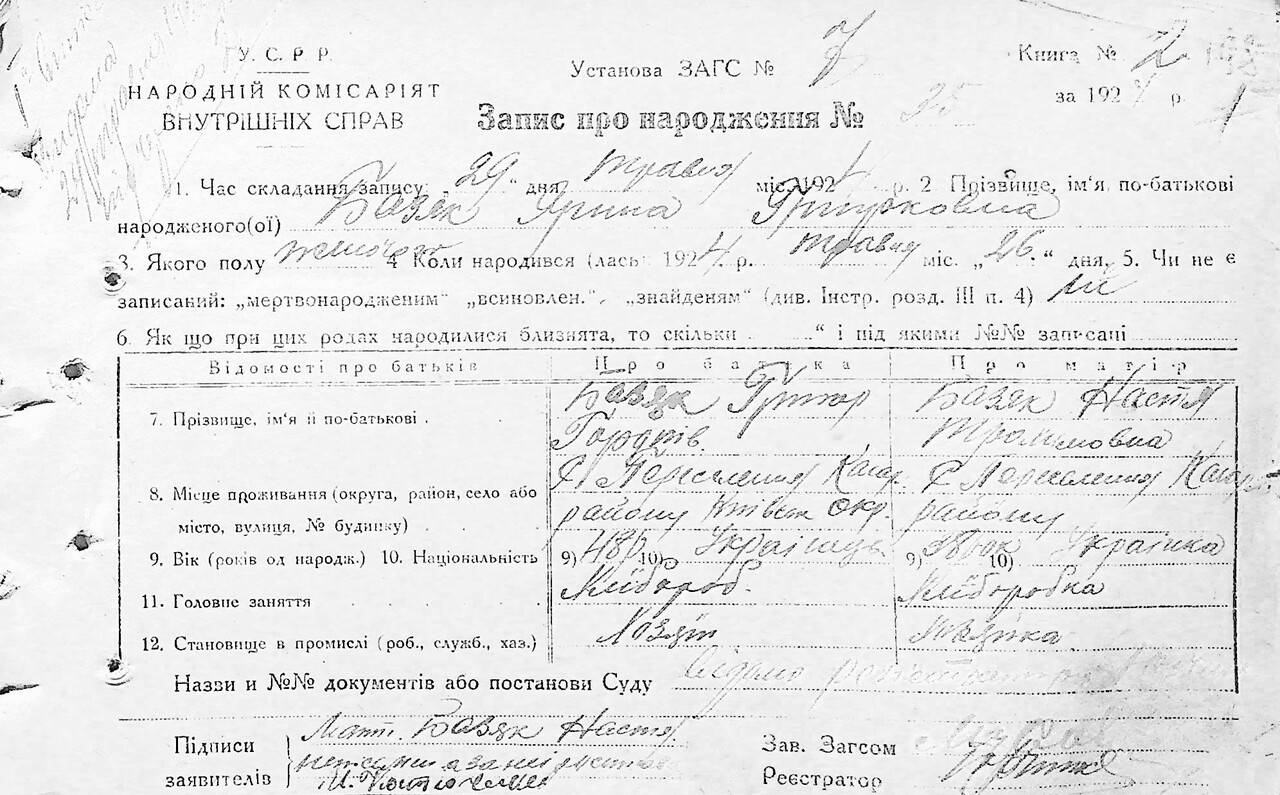 У. С. Р. Р.
НАРОДНІЙ КОМІСАРІЯТ
ВНУТРІШНІХ СПРАВ
Установа ЗАГС № 7
Книга № 2
за 1924 р.
Запис про народження № 25
1. Час складання запису: „29“ дня травня міс. 1924 р. 2 Прізвище, ім‘я по-батькові
народженого(ої) Базяк Ярина Грицковна
3. Якого полу жіночого 4 Коли народився (лась) 1924 р. травня міс. „26“ дня, 5. Чи не є
записаний: „мертвонародженим“ „всиновлен.“, „знайденям“ (див. Інстр. розд. III п. 4) ні
6. Як що при цих родах народилися близнята, то скільки “ і під якими №№ записані
Відомості про батьків Про батька Про матір
7. Прізвище, ім‘я й по-батькові Базяк Григор Базяк Настя
Гордіїв. Трохимовна
8. Місце проживання (округа, район, село або С Переселення Кагар. С Переселення Кагар.
місто, вулиця, № будинку) району Київськ окр. району
9. Вік (років од народж.) 10. Національність 9) 48р. 10) Українець 9) 38рок 10) Українка
11. Головне заняття Хлібороб. Хліборобка
12. Становище в промислі (роб., служб., хаз.) Хозяїн Хозяїка
Назви и №№ документів або постанови Суду відомо
Підписи Мати Базяк Настя
заявителів неписьменна
Зав. Загсом
Реєстратор